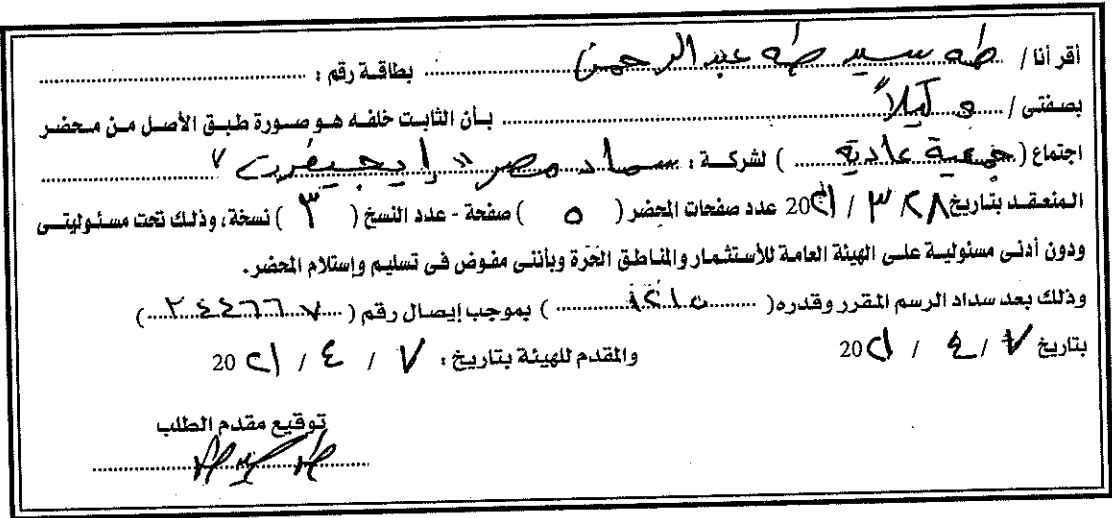 أقر أنا / طه سيد طه عبد الرحمن بطاقة رقم :
بصفتى / وكيلاً بأن الثابت خلفه هو صورة طبق الأصل من محضر
اجتماع ( جمعية عادية ) لشركة : سماد مصر " إيجيفرت "
المنعقد بتاريخ ٢٨ / ٣ / 20٢١ عدد صفحات المحضر ( ٥ ) صفحة - عدد النسخ ( ٣ ) نسخة، وذلك تحت مسئوليتى
ودون أدنى مسئولية على الهيئة العامة للأستثمار والمناطق الحرة وبأننى مفوض فى تسليم وإستلام المحضر.
وذلك بعد سداد الرسم المقرر وقدره ( ) بموجب إيصال رقم ( ٢٤٤٦٦٧ )
بتاريخ ٧ / ٤ / 20٢١ والمقدم للهيئة بتاريخ : ٧ / ٤ / 20٢١
توقيع مقدم الطلب